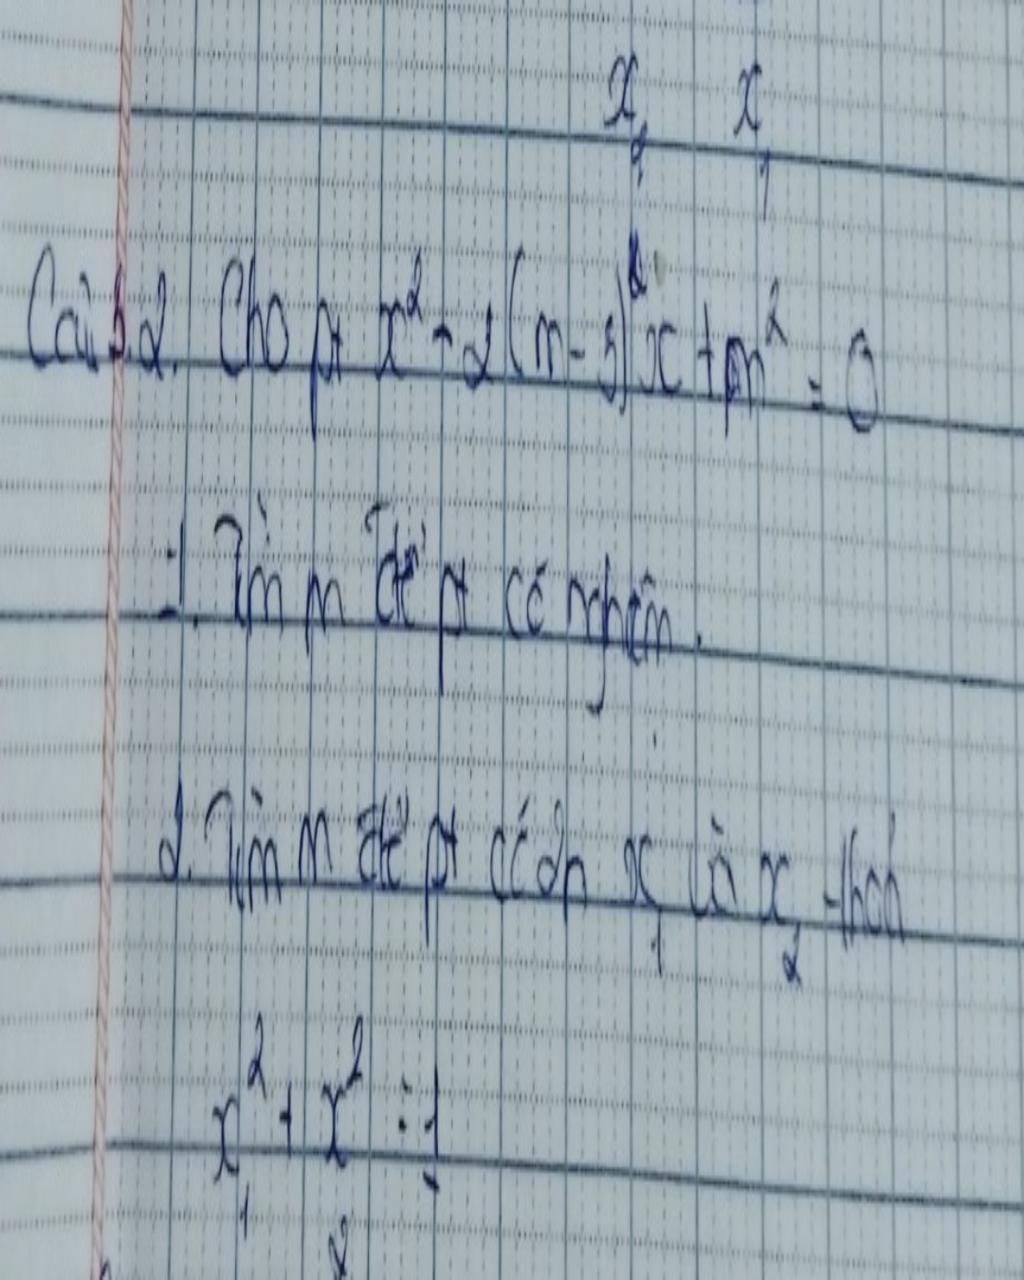 x₂ x₁
Câu 2. Cho pt x² - 2(m-3)x + m² = 0
1. Tìm m để pt có nghiệm.
2. Tìm m để pt có 2n x₁ và x₂ thoả
x₁² + x₂² = 1